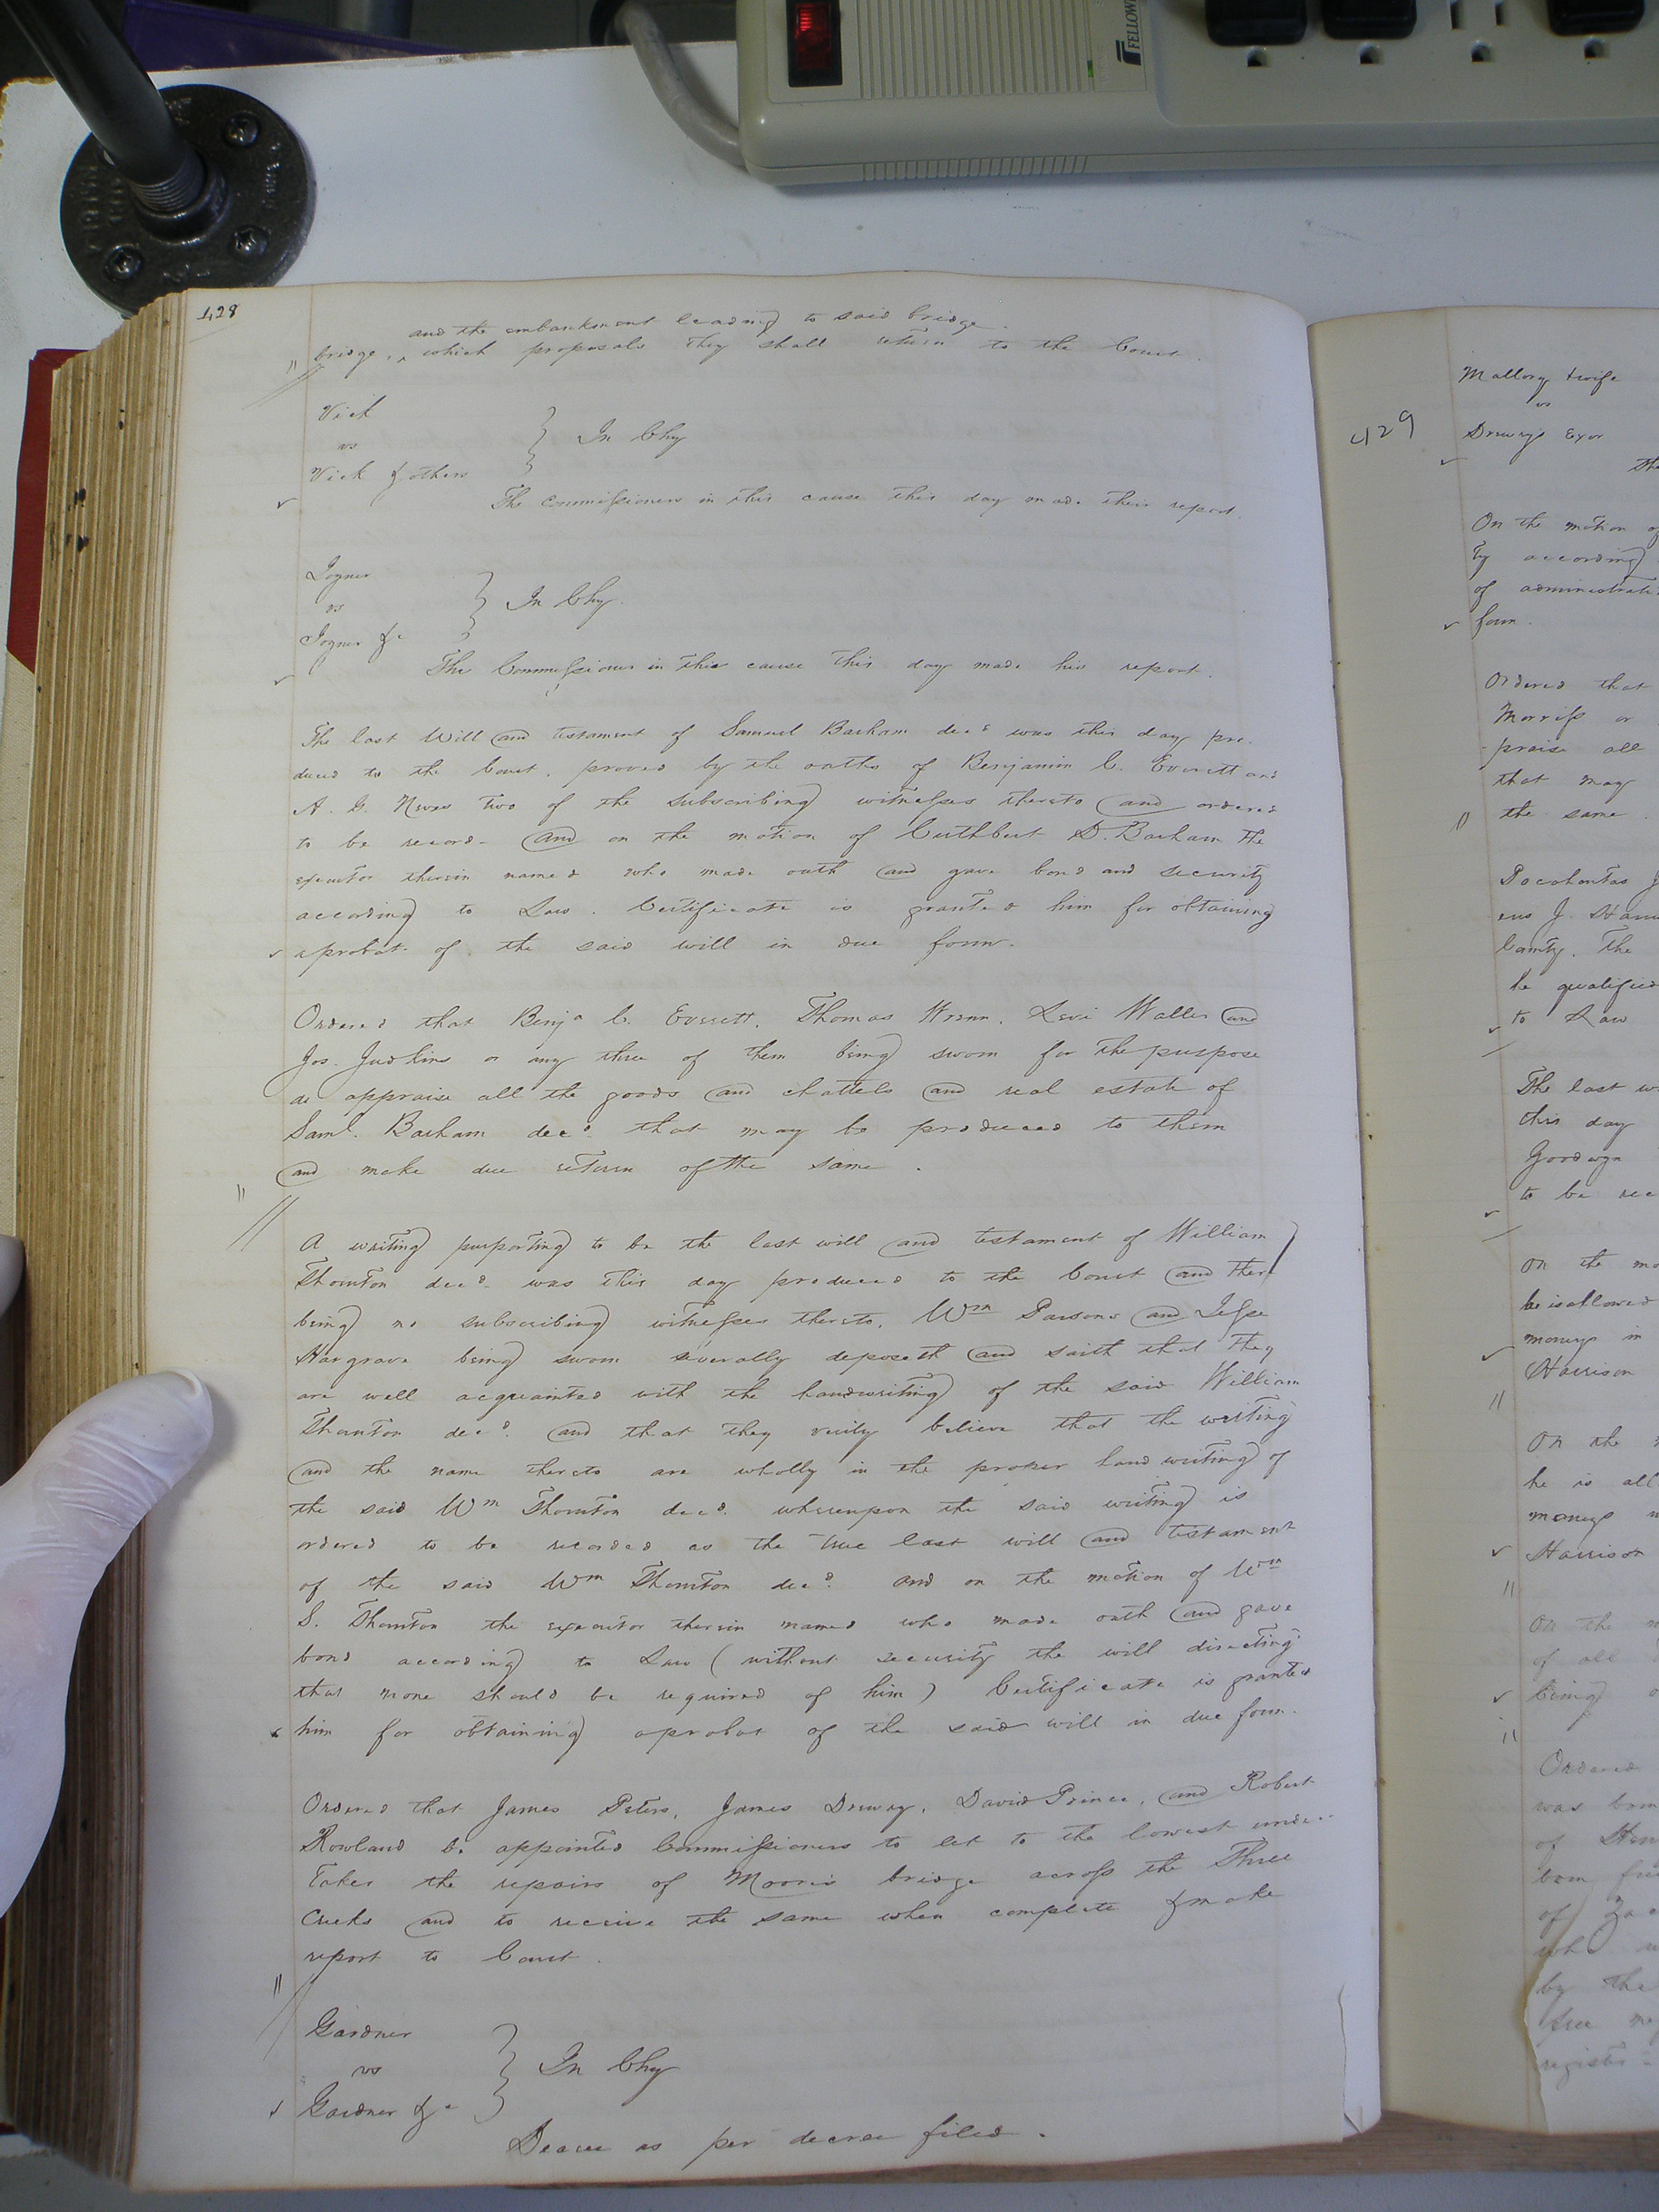 FELLOW
428
and the embankment leading to said bridge.
bridge, ^ which proposals they shall return to the Court.
Vick
vs
Vick & others
} In Chy
The commissioners in this cause this day made their report.
Joyner
vs
Joyner &c
} In Chy.
The Commissioner in this cause this day made his report.
The last Will and testament of Samuel Barham decd was this day pro-
duced to the Court, proved by the oaths of Benjamin C. Everett and
A. G. Neves two of the subscribing witnesses thereto and ordered
to be record- and on the motion of Cuthbert D. Barham the
executor therein named who made oath and gave bond and security
according to Law. Certificate is granted him for obtaining
a probat of the said will in due form.
Ordered that Benja C. Everett, Thomas Wrenn, Levi Waller and
Jos. Judkins or any three of them being sworn for the purpose
do appraise all the goods and chattels and real estate of
Saml. Barham decd. that may be produced to them
and make due return of the same.
A writing purporting to be the last will and testament of William
Thornton decd. was this day produced to the Court and there
being no subscribing witnesses thereto, Wm Parsons and Jesse
Hargrave being sworn severally deposeth and saith that they
are well acquainted with the handwriting of the said William
Thornton decd. and that they verily believe that the writing
and the name thereto are wholly in the proper handwriting of
the said Wm Thornton decd. whereupon the said writing is
ordered to be recorded as the true last will and testament
of the said Wm Thornton decd. and on the motion of Wm
S. Thornton the executor therein named who made oath and gave
bond according to Law (without security the will directing
that none should be required of him) Certificate is granted
him for obtaining a probat of the said will in due form.
Ordered that James Peters, James Drewry, David Prince, and Robert
Rowland be appointed Commissioners to let to the lowest under-
taker the repairs of Moores bridge across the Three
Creeks and to receive the same when complete & make
report to Court.
Gardner
vs
Gardner &c
} In Chy
Decree as per decree filed.
429
Mallory & wife
vs
Drewrys Exor
Th
On the motion of
ty according
of administrati
form.
Ordered that
Morriss or
praise all
that may
the same.
Pocahontas J
County. The
he qualified
to Law
The last w
this day
Goodwyn
to be rec
On the mo
be is allowed
moneys in
Harrison
On the
he is all
moneys
Harrison
On the
of all
being
Ordered
was born
of Hen
born free
of Zac
who w
by the
free ne
register